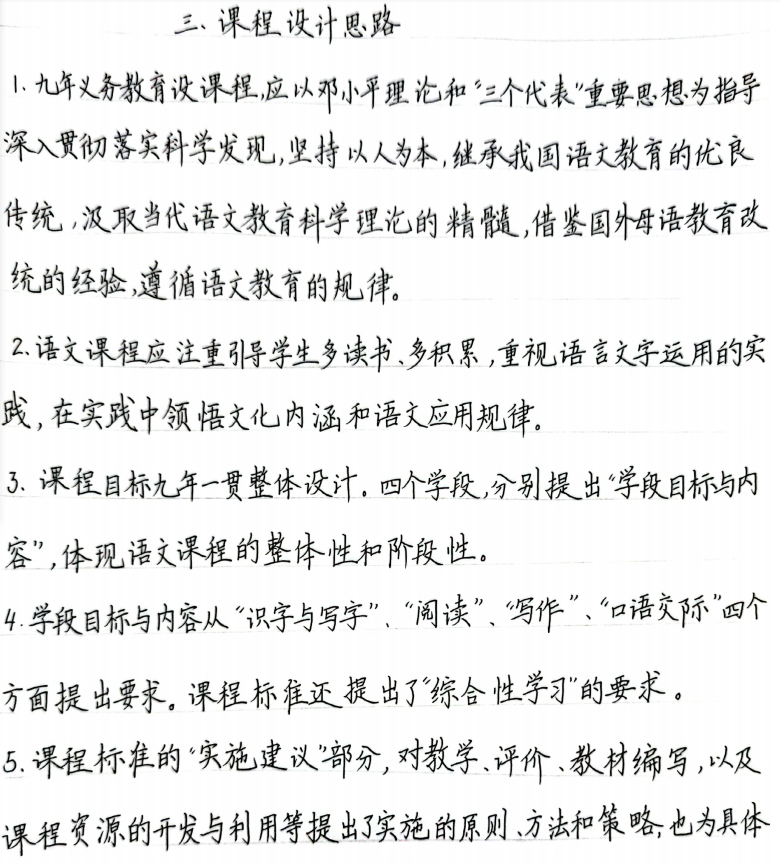 三、课程设计思路
1.九年义务教育设课程,应以邓小平理论和“三个代表”重要思想为指导
深入贯彻落实科学发现,坚持以人为本,继承我国语文教育的优良
传统,汲取当代语文教育科学理论的精髓,借鉴国外母语教育改
统的经验,遵循语文教育的规律。
2.语文课程应注重引导学生多读书、多积累,重视语言文字运用的实
践,在实践中领悟文化内涵和语文应用规律。
3.课程目标九年一贯整体设计。四个学段,分别提出“学段目标与内
容”,体现语文课程的整体性和阶段性。
4.学段目标与内容从“识字与写字”、“阅读”、“写作”、“口语交际”四个
方面提出要求。课程标准还提出了“综合性学习”的要求。
5.课程标准的“实施建议”部分,对教学、评价、教材编写,以及
课程资源的开发与利用等提出了实施的原则、方法和策略,也为具体